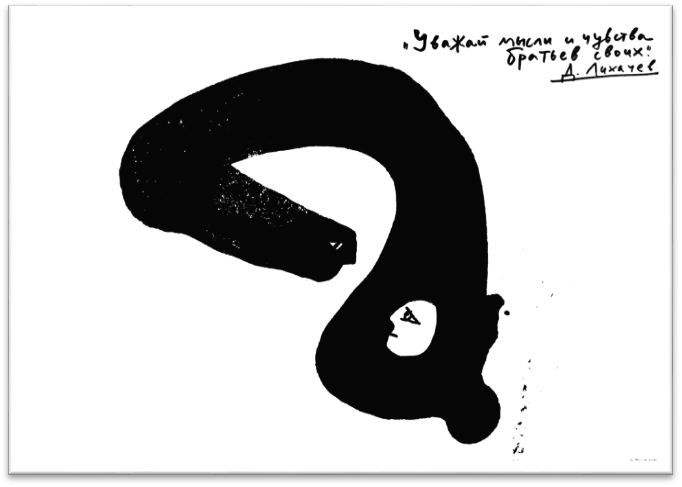 „Уважай мысли и чувства
братьев своих".
Д. Лихачев